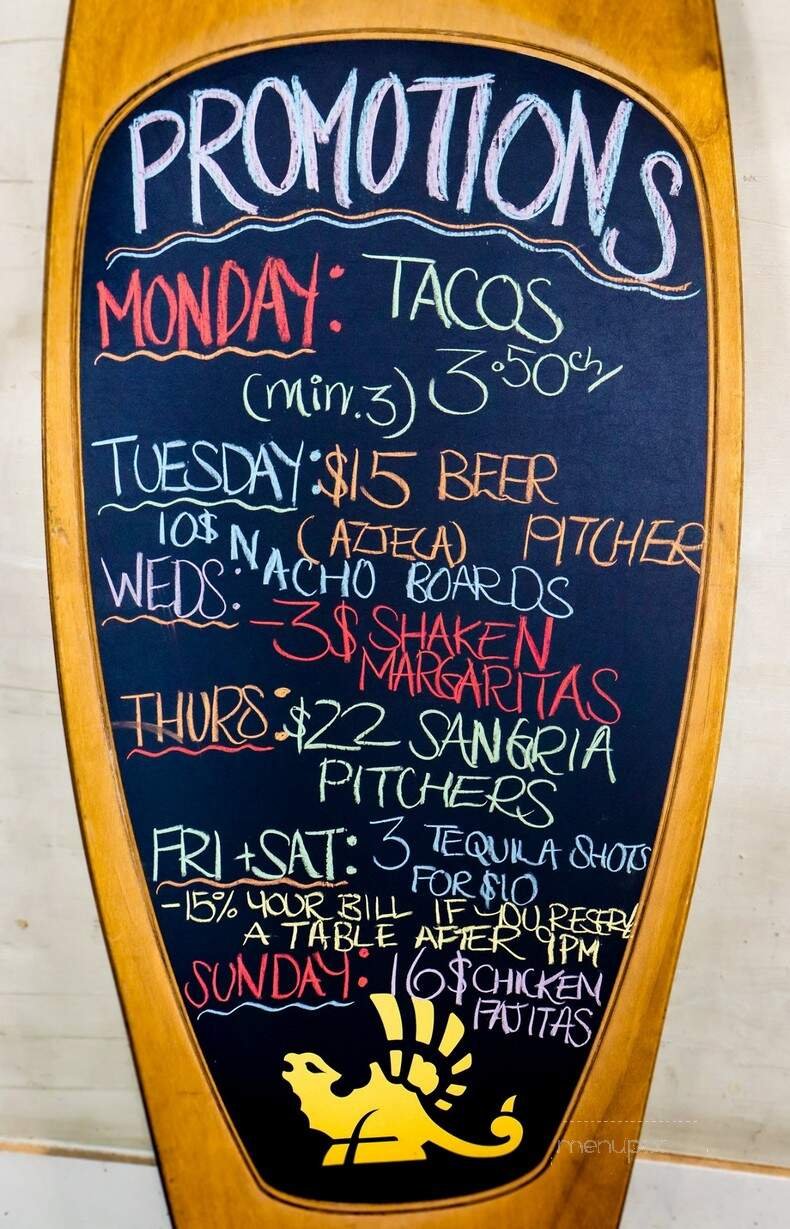 PROMOTIONS
MONDAY: TACOS
(min.3) 3.50ch/
TUESDAY: $15 BEER
(AZTECA) PITCHER
10$ NACHO BOARDS
WEDS:
-3$ SHAKEN
MARGARITAS
THURS: $22 SANGRIA
PITCHERS
FRI + SAT: 3 TEQUILA SHOTS
FOR $10
-15% YOUR BILL IF YOU RESERV
A TABLE AFTER 9PM
SUNDAY: 16$ CHICKEN
FAJITAS